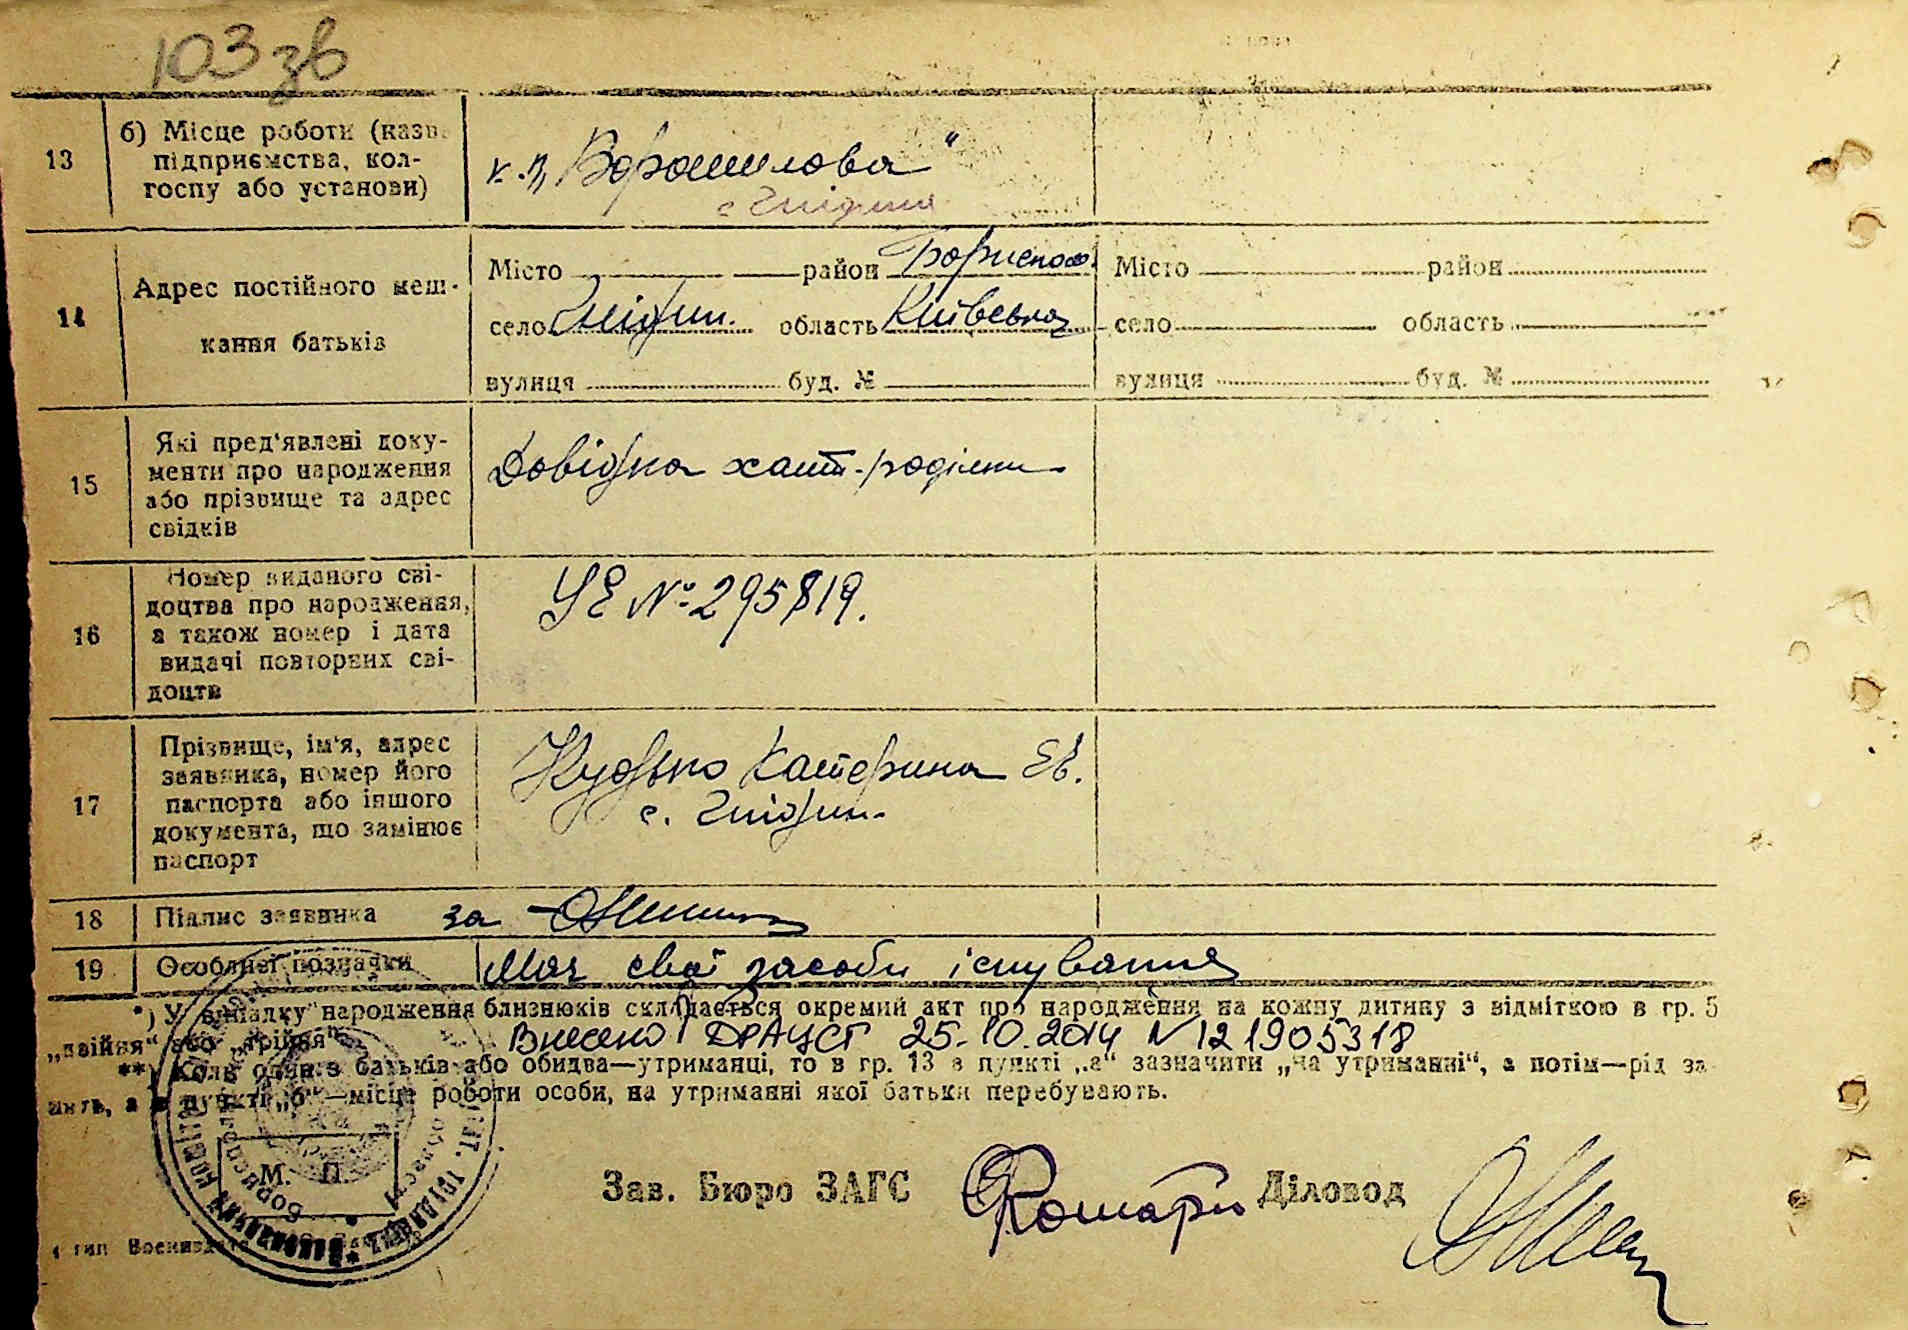 103 зв
13
б) Місце роботи (назв
підприємства, кол-
госпу або установи)
к-п „Ворошилова“
с Гнідин
14
Адрес постійного меш-
кання батьків
Місто район Бориспол.
село Гнідин. область Київська
вулиця буд. №
Місто район
село область
вулиця буд. №
15
Які пред'явлені доку-
менти про народження
або прізвище та адрес
свідків
Довідка хати-родільні
16
Номер виданого сві-
доцтва про народження,
а також номер і дата
видачі повторних сві-
доцтв
УЕ № 295819.
17
Прізвище, ім'я, адрес
заявника, номер його
паспорта або іншого
документа, що замінює
паспорт
Кудько Катерина Єв.
с. Гнідин.
18
Підпис заявника
за
19
Особливі позначки
Має свої засоби існування
*) У випадку народження близнюків складається окремий акт про народження на кожну дитину з відміткою в гр. 5
„двійня“ або „трійня“.
Внесено ДРАЦСГ 25.10.2014 N 121905318
**) Коли один з батьків або обидва—утриманці, то в гр. 13 в пункті „а“ зазначити „на утриманні“, а потім—рід за-
нять, а в пункті „б“—місце роботи особи, на утриманні якої батьки перебувають.
М. П.
Зав. Бюро ЗАГС
Діловод